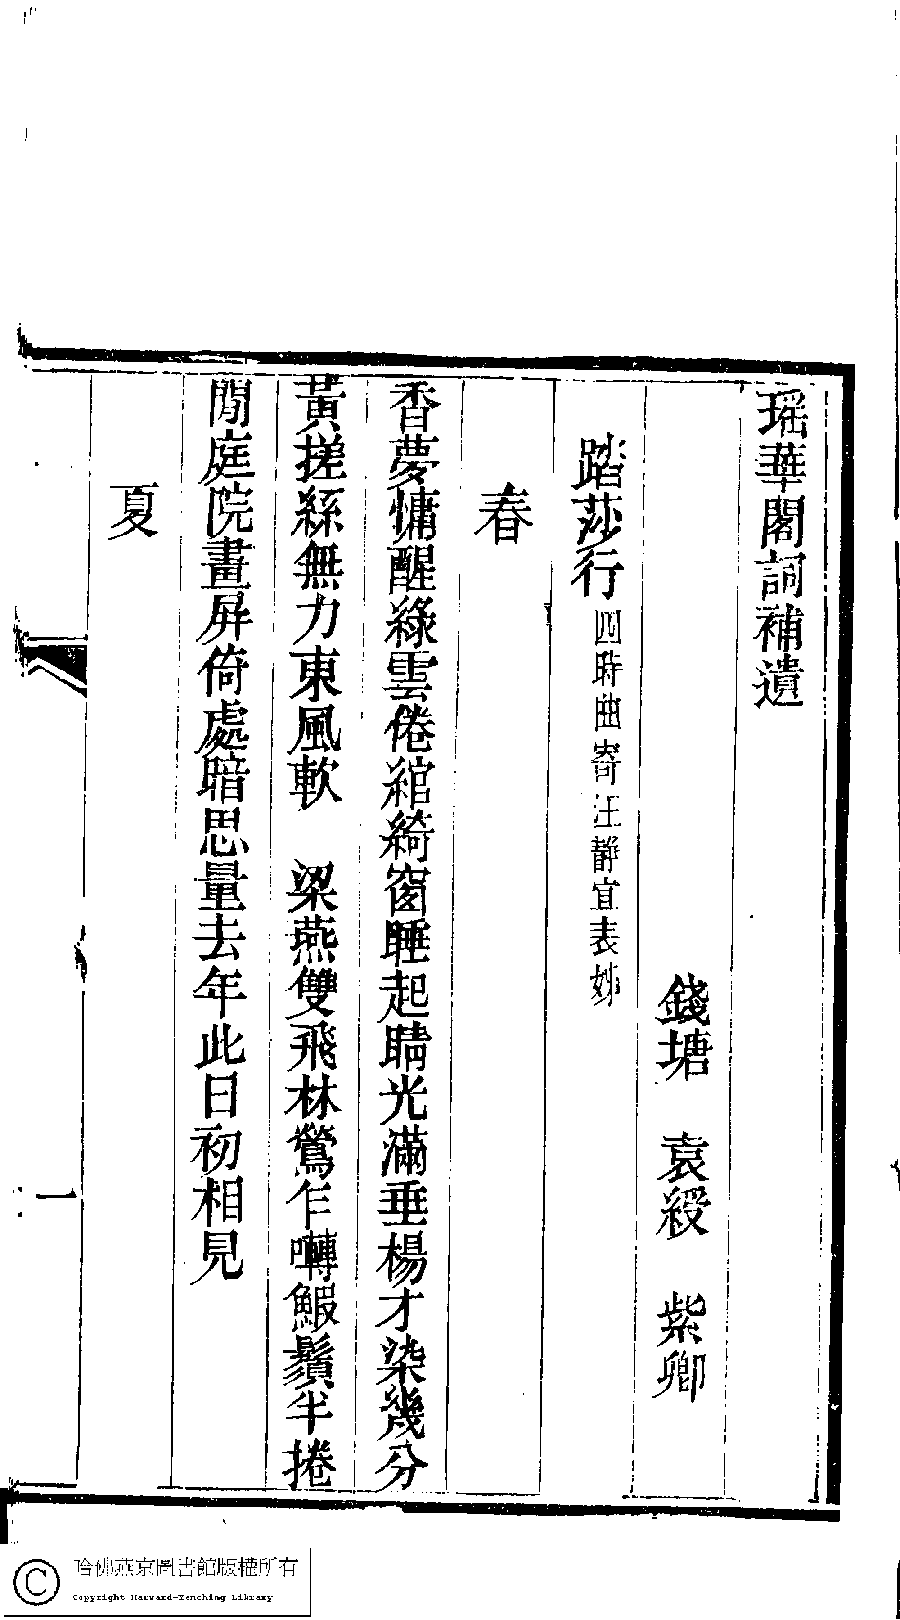 瑤華閣詞補遺
錢塘　袁綬　紫卿
踏莎行四時曲寄汪靜宜表姊
春
香夢慵醒綠雲倦綰綺窗睡起晴光滿垂楊才染幾分
黃搓絲無力東風軟　梁燕雙飛林鶯乍囀鰕鬚半捲
閒庭院畫屏倚處暗思量去年此日初相見
夏
一
哈佛燕京圖書館版權所有
Copyright Harvard-Yenching Library